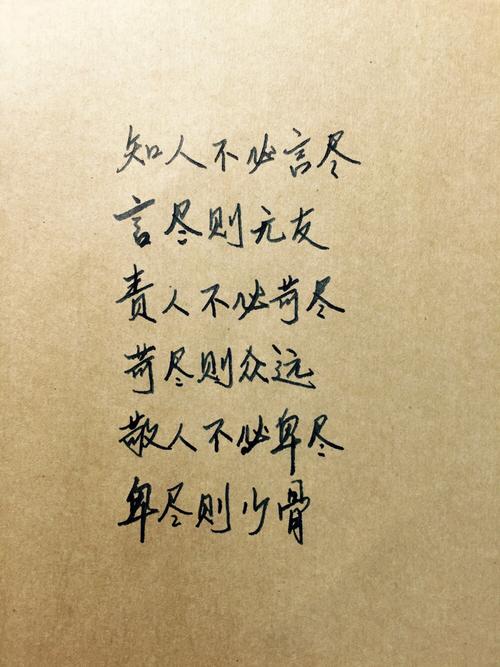 知人不必言尽
言尽则无友
责人不必苛尽
苛尽则众远
敬人不必卑尽
卑尽则少骨